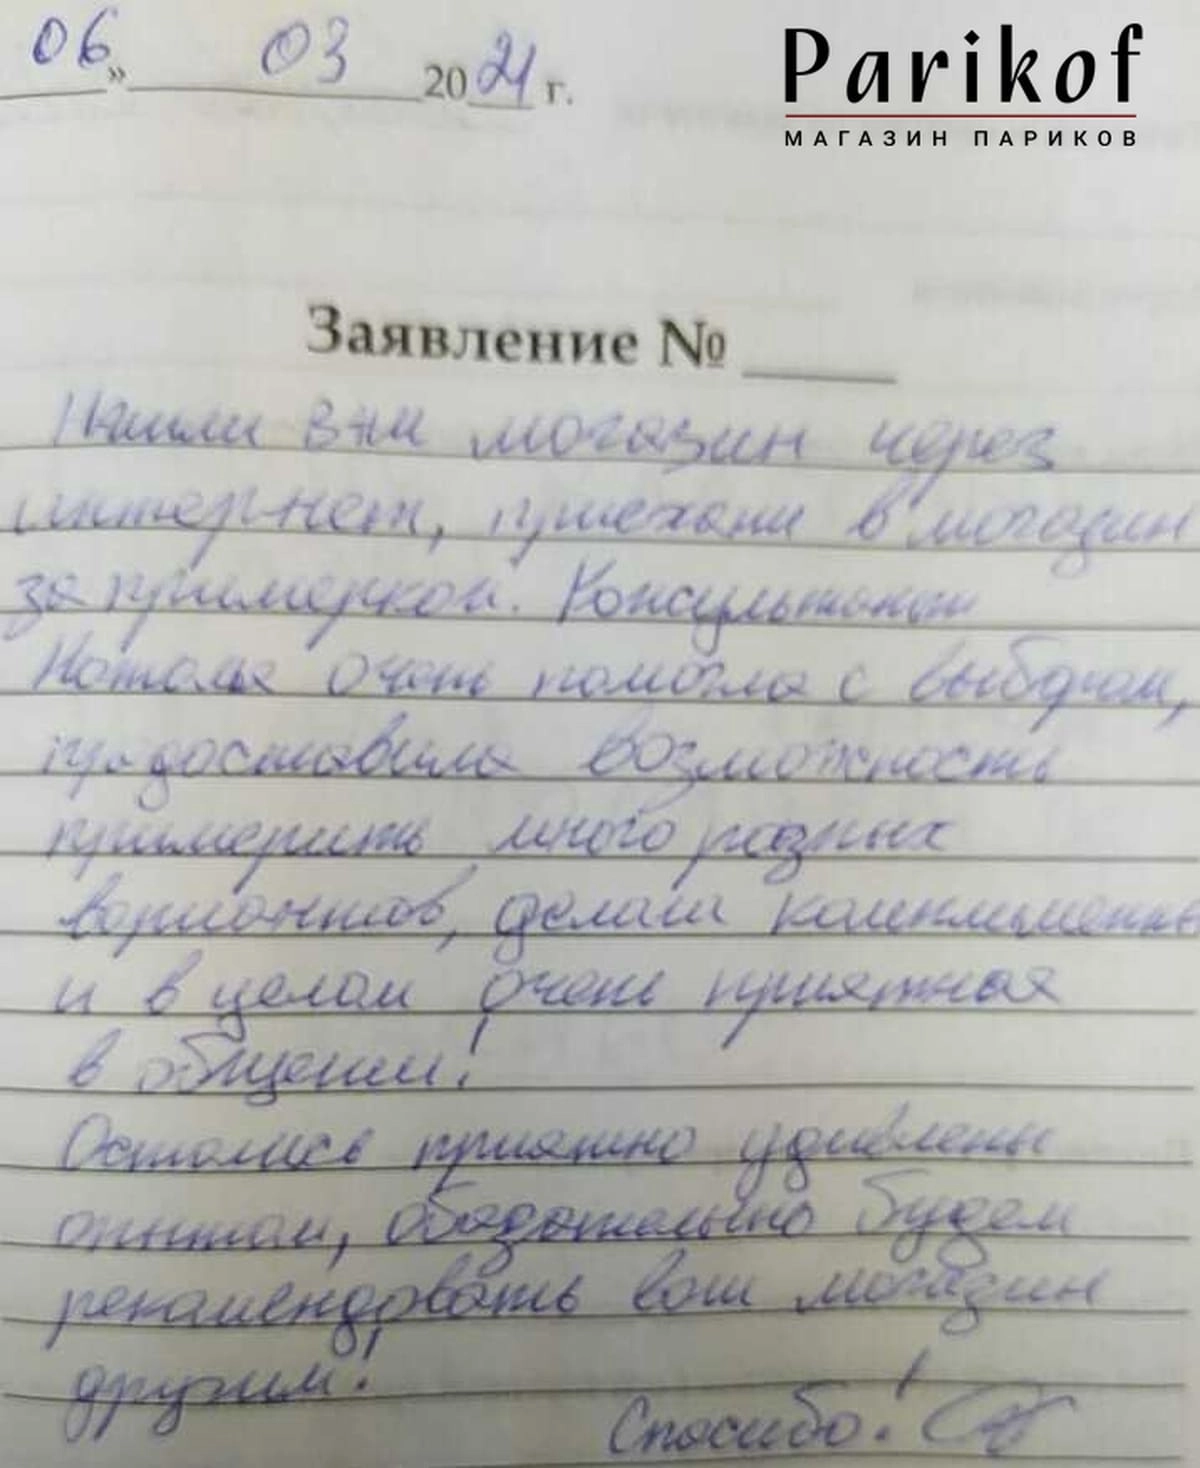 06 » 03 2021 г.
Parikof
МАГАЗИН ПАРИКОВ
Заявление №
Нашли ваш магазин через
интернет, приехали в магазин
за примеркой. Консультант
Наталья очень помогла с выбором,
предоставила возможность
примерить много разных
вариантов, делала комплименты
и в целом очень приятная
в общении!
Остались приятно удивлены
опытом, обязательно будем
рекомендовать ваш магазин
другим!
Спасибо!